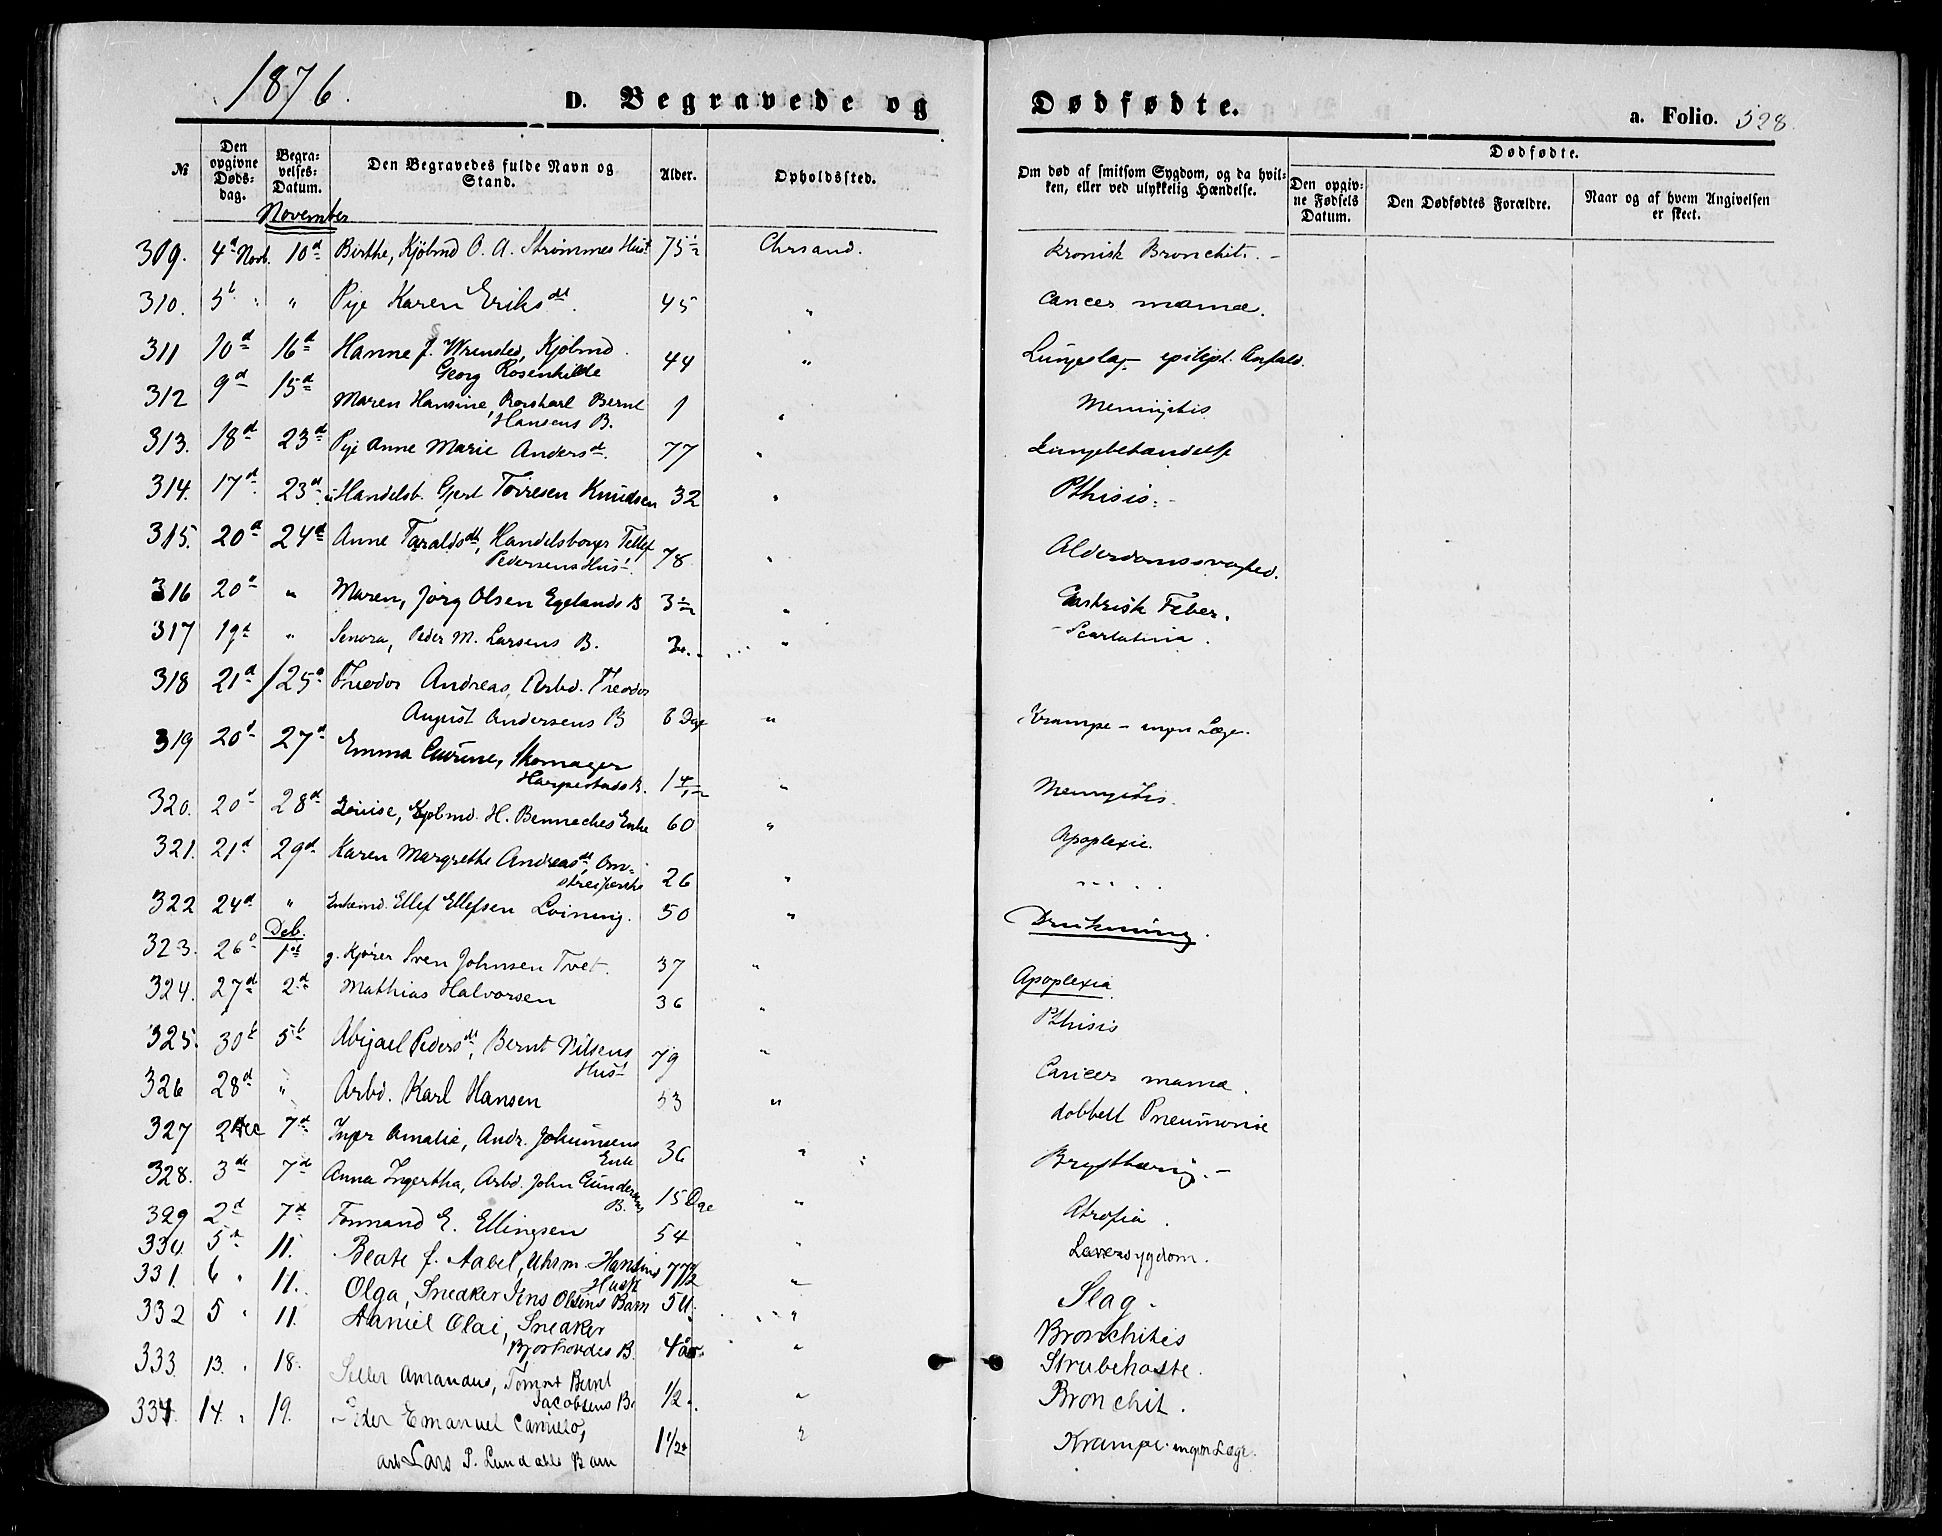 1876.
D. Begravede og Dødfødte.
a. Folio. 328.
№ Den opgivne Dødsdag. Begravelses-Datum. Den Begravedes fulde Navn og Stand. Alder. Opholdssted. Om død af smitsom Sygdom, og da hvilken, eller ved ulykkelig Hændelse. Dødfødte. Den opgivne Fødsels Datum. Den Dødfødtes Forældre. Naar og af hvem Angivelsen er skeet.
November
309. 4d Novb. 10d Birthe, Kjøbmd O. A. Strømmes Hust 75½ Chrsand. kronisk Bronchit. -
310. 5t " " Pige Karen Eriksdt. 45 " Cancer mamæ.
311 10d 16d Hanne f. Wrensted, Kjøbmd. 44 " Lungeslag - epilept. Anfald.
Georg Rosenkilde
312 9d 15d Maren Hansine, Bernt 1 " Meningitis
Hansens B.
313. 18d 23d Pige Anne Marie Andersdt. 77 "
314. 17d 23d Handelsb. Gert Torresen Knudsen 32 " Phthisis. -
315. 20d 24d Anne Taraldsdt, Handelsborger Tellef 78 "
Pedersens Hust.
316 20d " Maren, Jørg Olsen Egelands B 3½ " Gastrisk Feber.
317 19d " Senora, Peder M. Larsens B. " Scarlatina.
318 21d 25d Theodor Andreas, Arbd. Theodor
August Andersens B 8 Dage " Krampe - ingen Læge.
319 20d 27d Emma , Skomager
Harpestads B. 1 " Meningitis.
320. 20d 28d Louise, Kjøbmd. H. Benneches Enke 60 " Apoplexie.
321. 21d 29d Karen Margrethe Andreasdt, Om-
streiferske 26 " " " " "
322 24d " Enkemd. Ellef Ellefsen Loining. 50 " Drukning.
Deb.
323. 26d 1st g. Kjører Sven Johnsen Tvet. 37 " Apoplexia.
324. 27d 2d Mathias Halvorsen 36 " Phthisis
325. 30t 5t Abigael Pedersdt, Bernt Nilsens 79 " Cancer mamæ.
Hust
326 28d " Arbd. Karl Hansen 53 " dobbelt Pneumonie
327 2 Dec 7d Inger Amalie, Andr. Johnnsens 36 " -
Enke
328. 3de 7de Anna Ingertha, Arbd. John Gundersens 15 Dge " Atrofia.
B.
329 2d 7d E. Ellingsen 54 " Leversygdom.
330. 5d 11. Beate f. Aabel, Uhrm. Hansens 77½ " Slag.
Hust
331. 6 " 11. Olga, Sneaker Jens Olsens Barn 5 U. " Bronchitis
332 5 " 11. Daniel Olai, Sneaker
B. 4 aar. " Strubehoste.
333. 13. " 18. Amandus, Tømmt Bernt
Jacobsens B. 1/2. " Bronchit.
334. 14. " 19. Peder Emanuel Camillo,
arb Lars P. Lundahls Barn 1 1/2 " Krampe. ingen Læge.